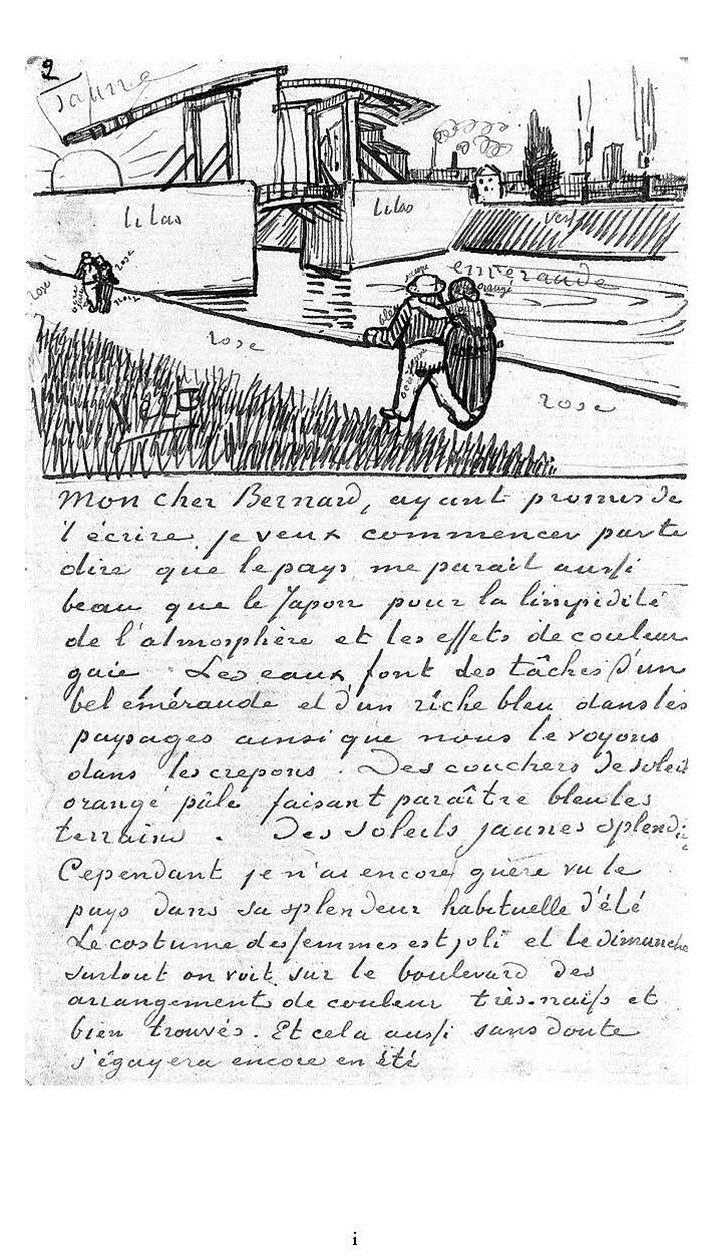 2
Jaune
lilas
lilas
vert
emeraude
jaune
orangé
rose
rose
rose
noir
rose
vert
rose
Mon cher Bernard, ayant promis de
t'écrire je veux commencer par te
dire que le pays me parait aussi
beau que le Japon pour la limpidité
de l'atmosphère et les effets de couleur
gaie. Les eaux font des tâches d'un
bel eméraude et d'un riche bleu dans les
paysages ainsi que nous le voyons
dans les crepons. Des couchers de soleil
orangé pâle faisant paraître bleu les
terrains. Des soleils jaunes splendi
Cependant je n'ai encore guère vu le
pays dans sa splendeur habituelle d'été
Le costume des femmes est joli et le dimanche
surtout on voit sur le boulevard des
arrangements de couleur très naifs et
bien trouvés. Et cela aussi sans doute
s'égayera encore en été
i